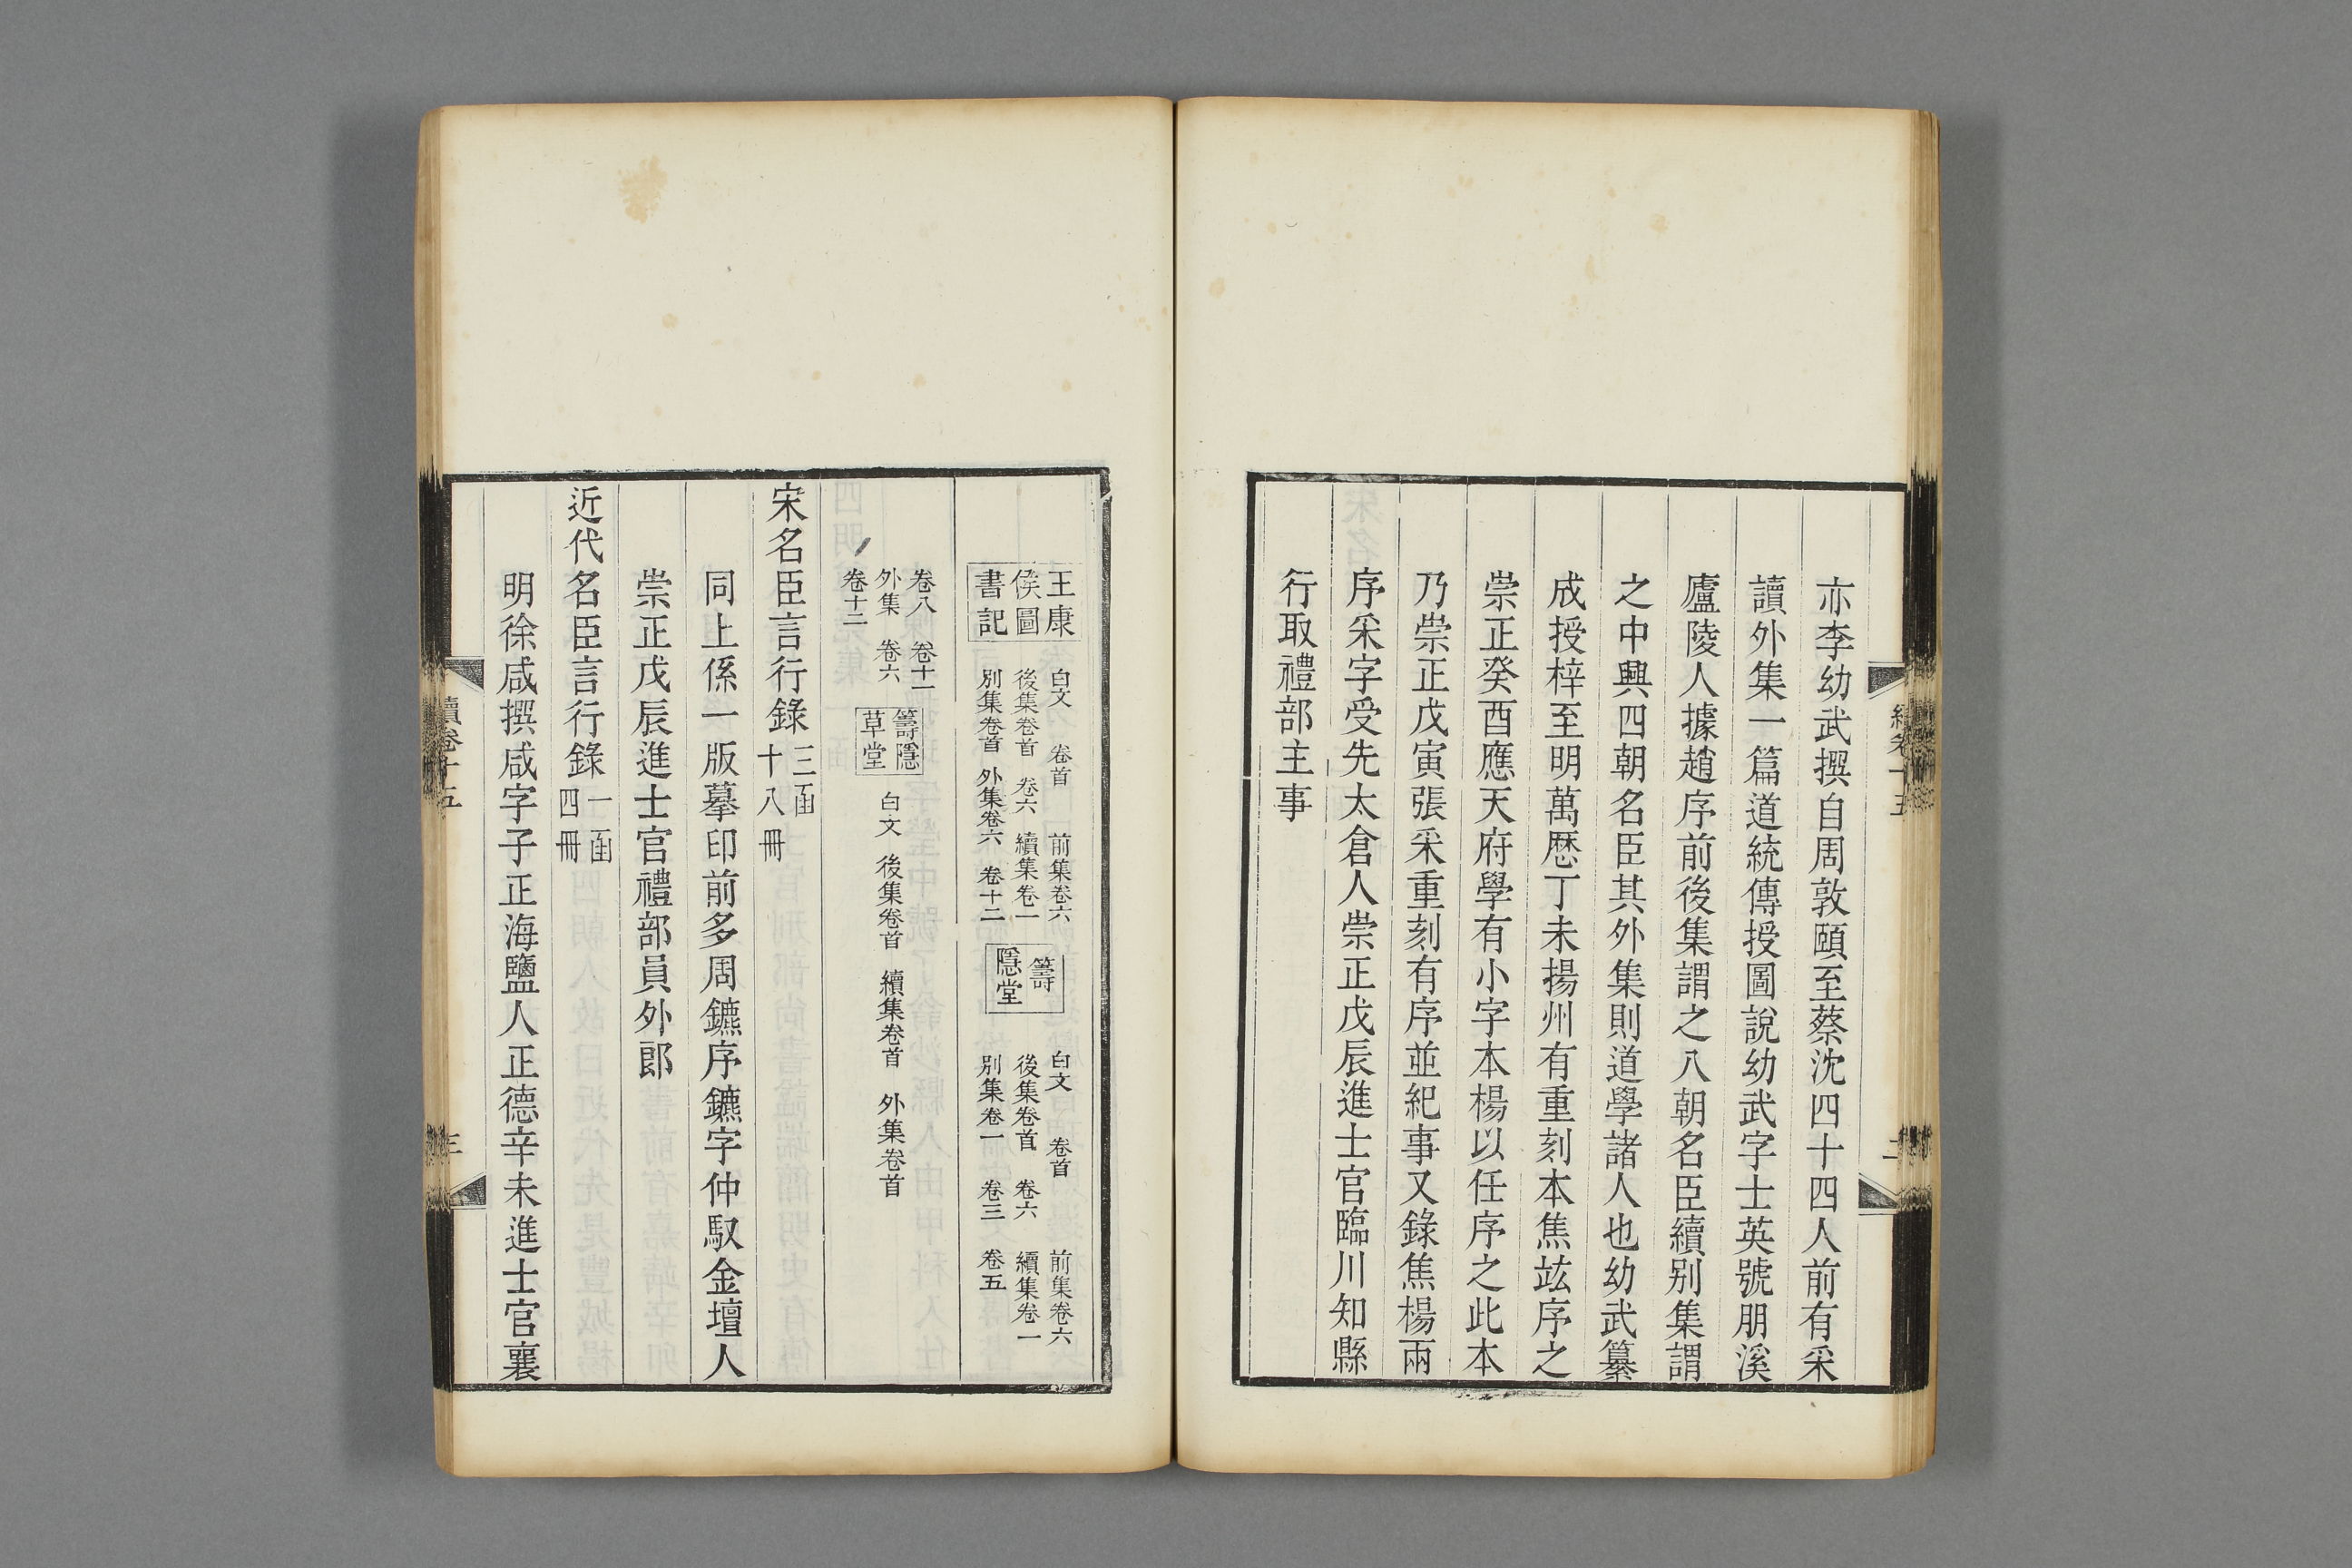 亦李幼武撰自周敦頤至蔡沈四十四人前有采
讀外集一篇道統傳授圖說幼武字士英號朋溪
廬陵人據趙序前後集謂之八朝名臣續别集謂
之中興四朝名臣其外集則道學諸人也幼武纂
成授梓至明萬厯丁未揚州有重刻本焦竑序之
崇正癸酉應天府學有小字本楊以任序之此本
乃崇正戊寅張采重刻有序並紀事又錄焦楊兩
序采字受先太倉人崇正戊辰進士官臨川知縣
行取禮部主事
王康
侯圖
書記
白文 卷首 前集卷六
後集卷首 卷六 續集卷一
別集卷首 外集卷六 卷十二
籌
隱堂
白文 卷首 前集卷六
後集卷首 卷六 續集卷一
別集卷一 卷三 卷五
卷八 卷十一
外集 卷六
卷十二
籌隱
草堂
白文 後集卷首 續集卷首 外集卷首
宋名臣言行錄 三函
十八冊
同上係一版摹印前多周鑣序鑣字仲馭金壇人
崇正戊辰進士官禮部員外郎
近代名臣言行錄 一函
四冊
明徐咸撰咸字子正海鹽人正德辛未進士官襄
續卷十五
三